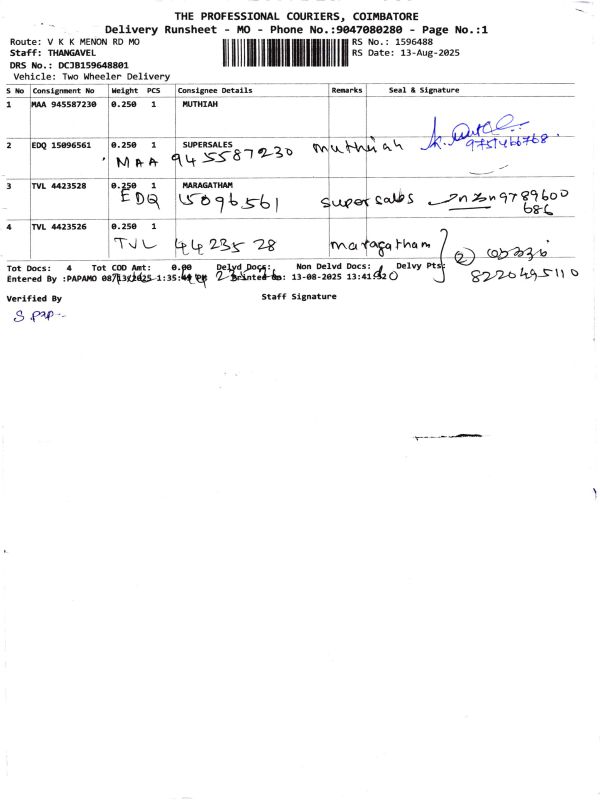 THE PROFESSIONAL COURIERS, COIMBATORE
Delivery Runsheet - MO - Phone No.:9047080280 - Page No.:1
Route: V K K MENON RD MO RS No.: 1596488
Staff: THANGAVEL RS Date: 13-Aug-2025
DRS No.: DCJB159648801
Vehicle: Two Wheeler Delivery
S No Consignment No Weight PCS Consignee Details Remarks Seal & Signature
1 MAA 945587230 0.250 1 MUTHIAH
9751466768
2 EDQ 15096561 0.250 1 SUPERSALES
MAA 945587230 muthiah
3 TVL 4423528 0.250 1 MARAGATHAM
EDQ 15096561 supersales 9789600
686
4 TVL 4423526 0.250 1
TVL 4423528 maragatham
2
8220495110
Tot Docs: 4 Tot COD Amt: 0.00 Delvd Docs: Non Delvd Docs: Delvy Pts:
Entered By :PAPAMO 08/13/2025 1:35: PM Printed On: 13-08-2025 13:41:
Verified By Staff Signature